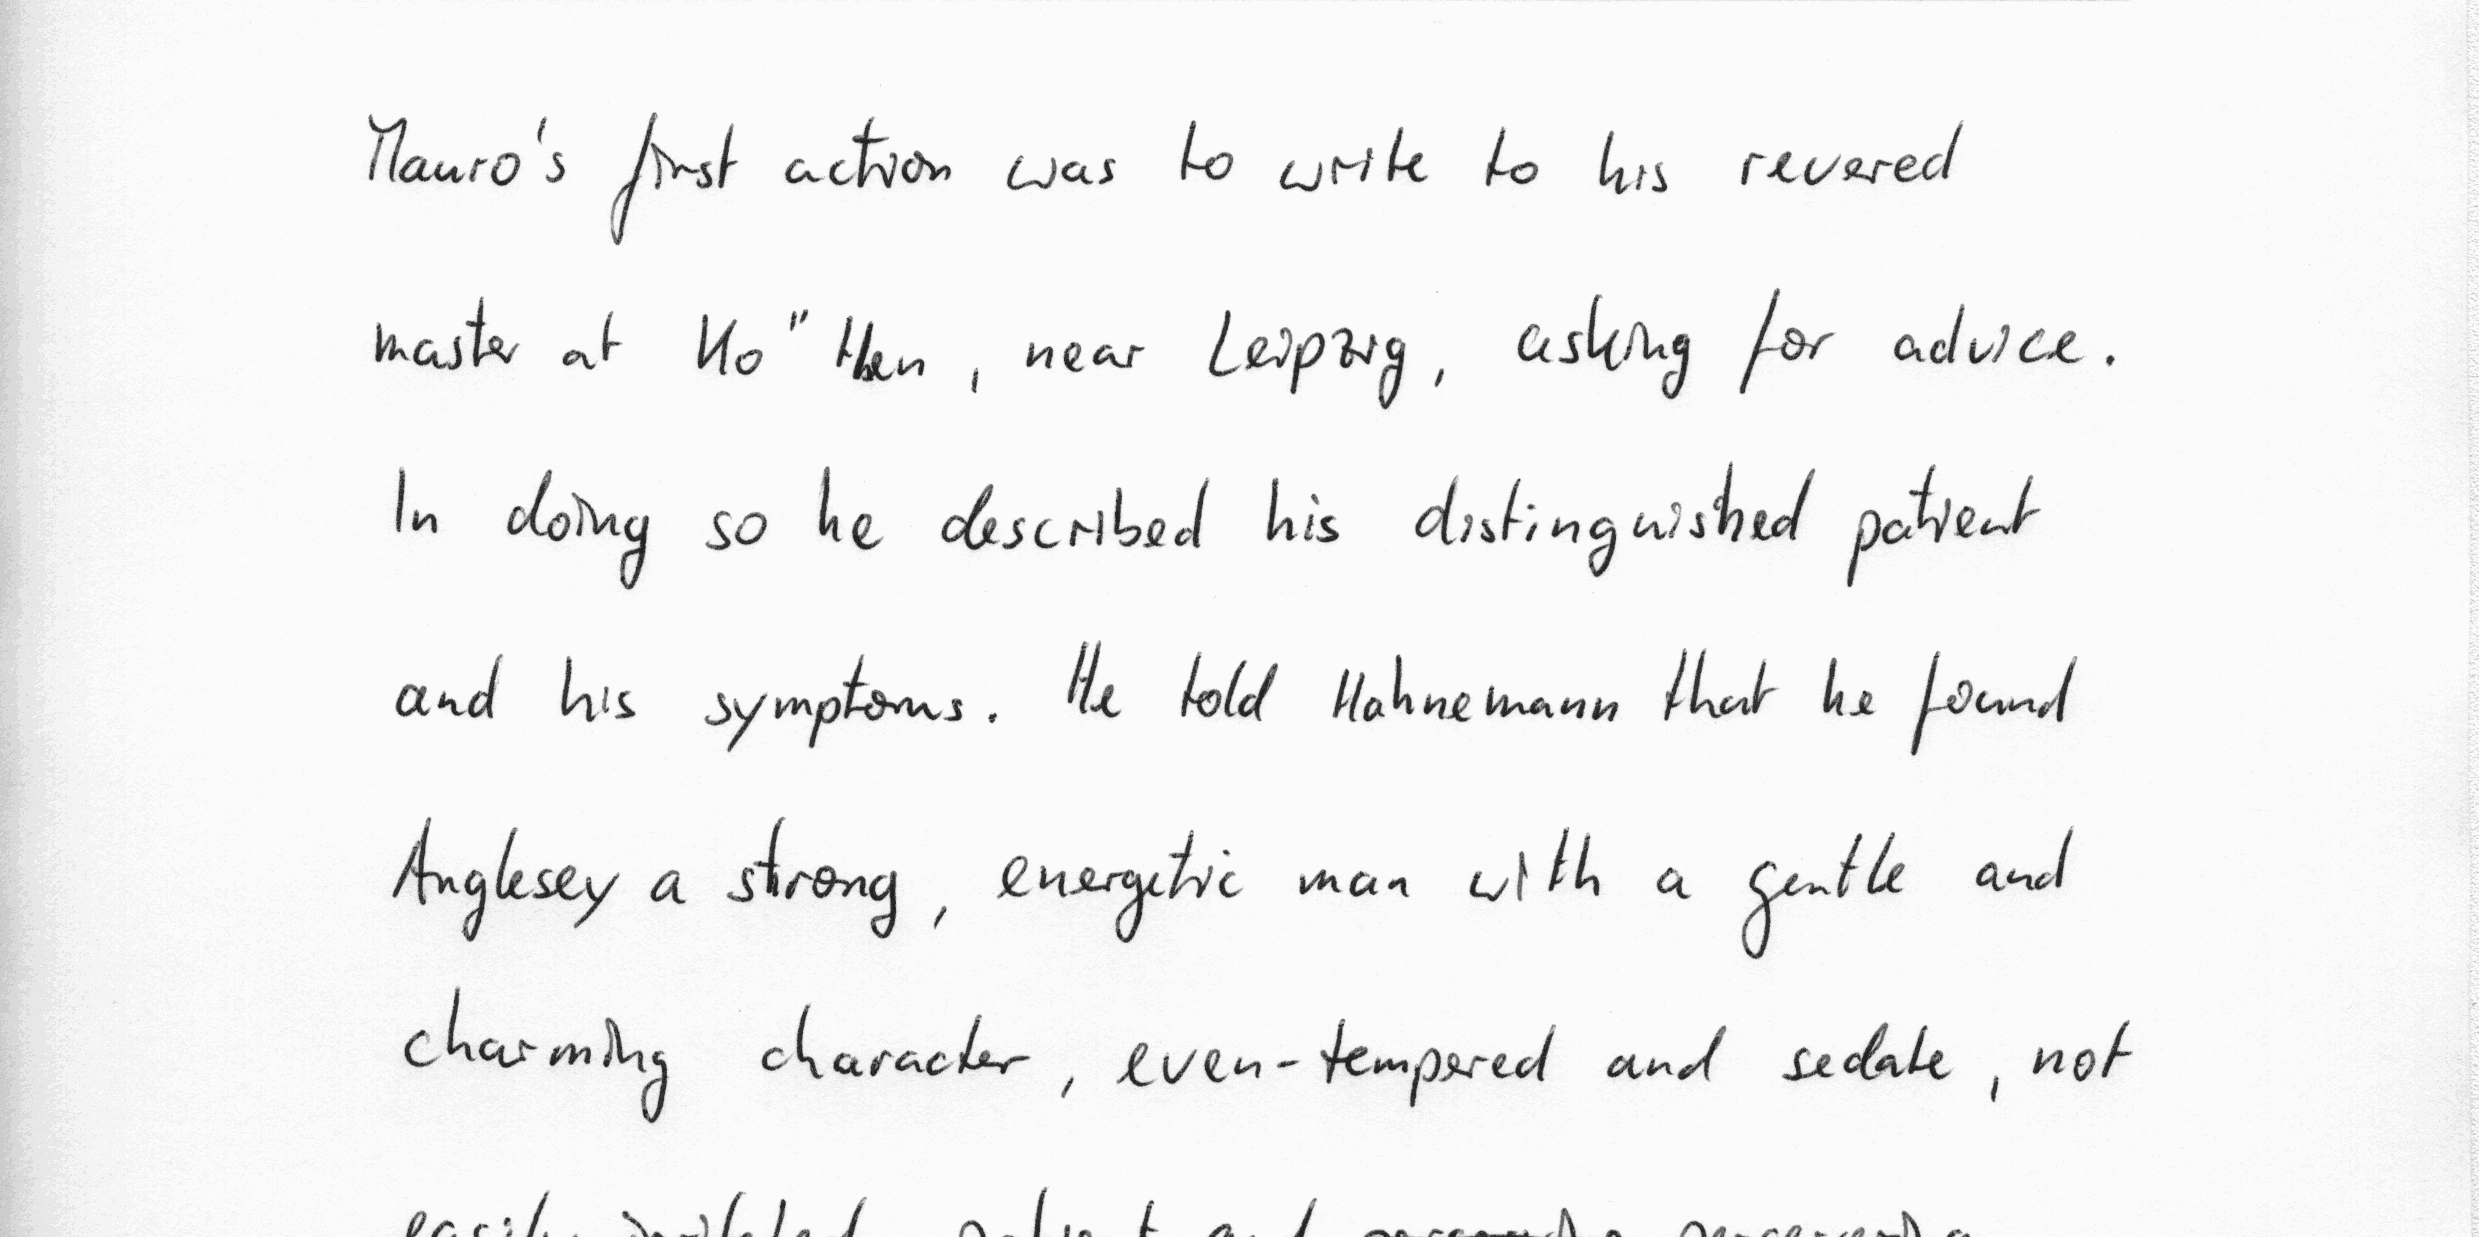 Mauro's first action was to write to his revered
master at Ko"then, near Leipzig, asking for advice.
In doing so he described his distinguished patient
and his symptoms. He told Hahnemann that he found
Anglesey a strong, energetic man with a gentle and
charming character, even-tempered and sedate, not
easily irritated, and